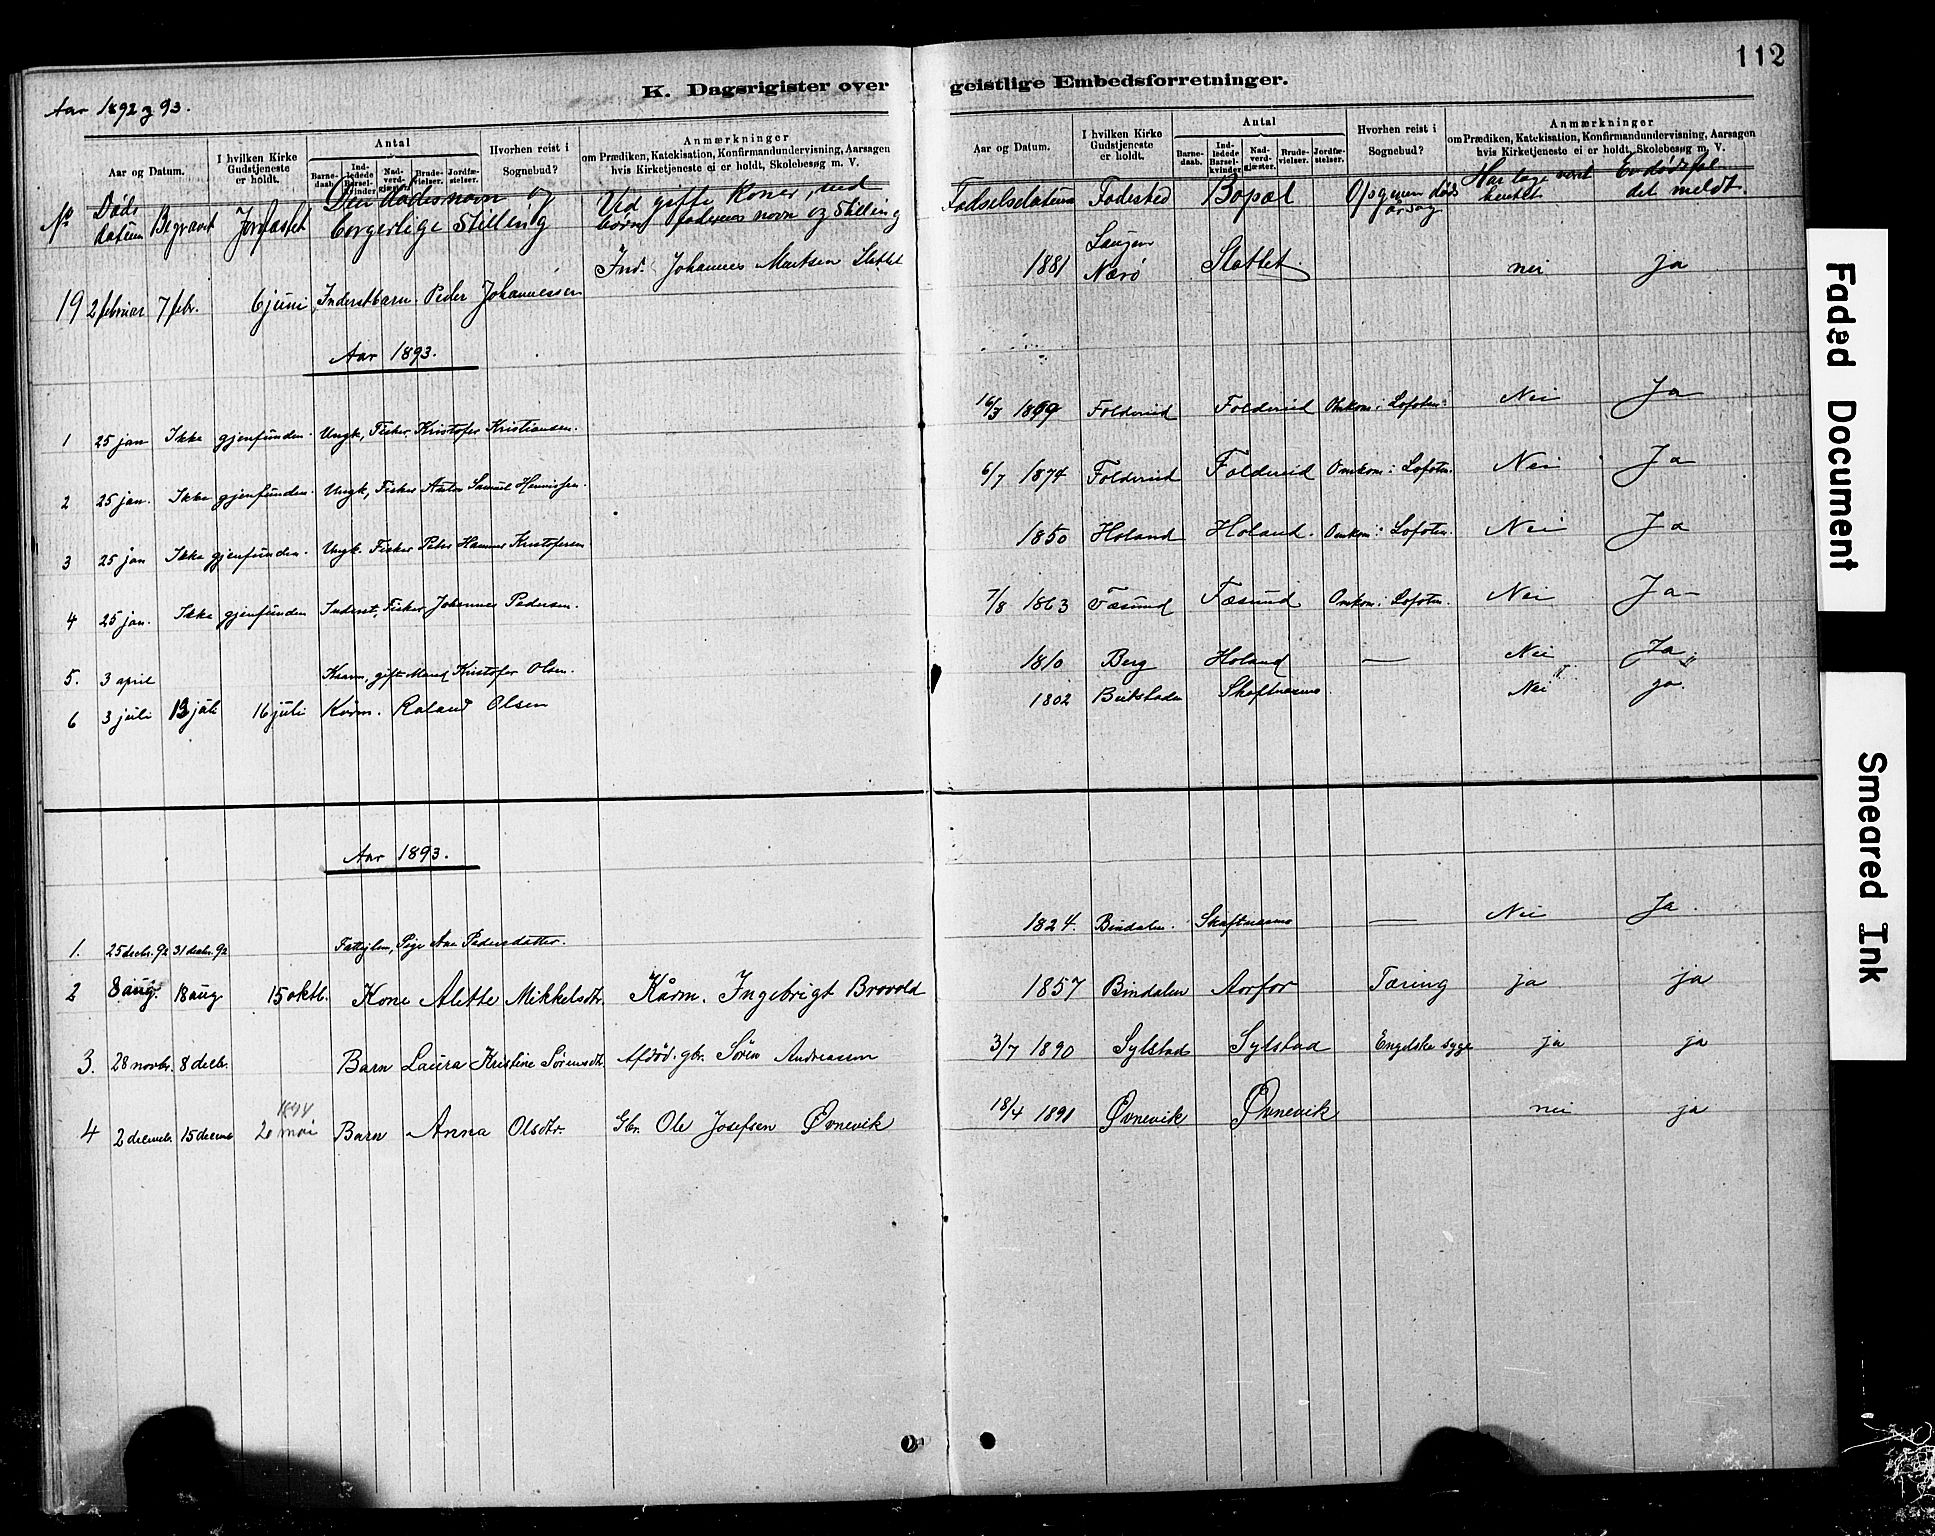 112
K. Dagsrigister over geistlige Embedsforretninger.
Aar 1892 og 93.
Aar og Datum.
I hvilken Kirke Gudstjeneste er holdt.
Antal
Barnedaab.
Indledede Barselkvinder
Nadverdgjæster
Brudevielser.
Jordfæstelser.
Hvorhen reist i Sognebud?
Anmærkninger
om Prædiken, Katekisation, Konfirmandundervisning, Aarsagen
hvis Kirketjeneste ei er holdt, Skolebesøg m. V.
Aar og Datum.
I hvilken Kirke Gudstjeneste er holdt.
Antal
Barnedaab.
Indledede Barselkvinder
Nadverdgjæster.
Brudevielser.
Jordfæstelser.
Hvorhen reist i Sognebud?
Anmærkninger
om Prædiken, Katekisation, Konfirmandundervisning, Aarsagen
hvis Kirketjeneste ei er holdt, Skolebesøg m. V.
No Døds datum Begravet Jordfæstet Den dødes navn og borgerlige Stilling Ved gifte Koner, ved børn faderens navn og Stilling Fødselsdatum Fødested Bopæl Opgiven dødsårsag Har læge været hentet Er dødsfaldet meldt
19 2 februar 7 febr. 6 juni Inderstbarn Peder Johannessen Ind. Johannes Slettet 1881 Nærø Slettet nei ja
Aar 1893.
1 25 jan Ikke gjenfunden. Ungk, Fisker Kristofer Kristiansen. 16/3 Foldereid Foldereid Omkom i Lofoten Nei Ja
2 25 jan. Ikke gjenfunden. Ungk, Fisker Samuel 6/7 1874 Foldereid Foldereid Omkom i Lofoten. Nei Ja
3 25 jan Ikke gjenfunden. Ungk. Fisker Peter Kristofersen 1850 Høland Høland. Omkom i Lofoten. Nei Ja
4 25 jan. Ikke gjenfunden Inderst, Fisker Johannes Pedersen. 7/8 1863 Omkom i Lofoten. Nei Ja
5. 3 april gift Mand Kristofer Olsen. 1810 Berg Høland — Nei Ja
6 3 juli 13 juli 16 juli Roland Olsen 1802 Nei ja.
Aar 1893.
1. 25 decbr. 92 31 decbr. 92 Pige Ane Pedersdatter. 1824. Bindalen. — Nei Ja.
2 8 aug. 18 aug 15 oktb. Kone Alette Mikkelsdtr. Kårm. Ingebrigt Brovold 1857 Bindalen Aarfor Tæring ja ja
3. 28 novbr. 8 decbr. Barn Laura Kristine Sørensdtr. Afdød. gbr. Søren Andreassen 3/7 1890 Sylstad Sylstad Engelske syge ja ja
1894
4 2 decmb. 15 decmb 20 mai Barn Anna Olsdtr. Gbr. Ole Josefsen Øvnevik 18/4 1891 Øvnevik Øvnevik nei ja
Faded Document
Smeared Ink